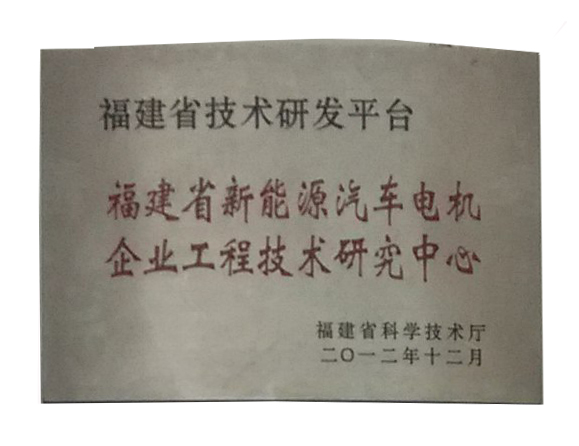 福建省技术研发平台
福建省新能源汽车电机
企业工程技术研究中心
福建省科学技术厅
二〇一二年十二月